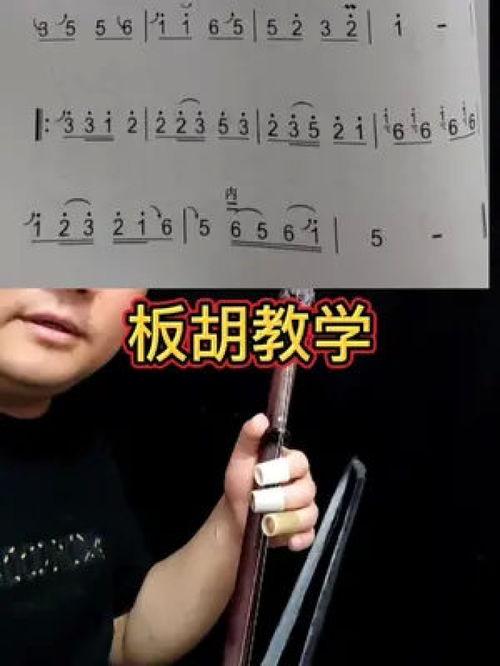 3 5 5 6 | 1̇ 1̇ 6 5 | 5 2̇ 3 2̇ | 1̇ -
‖: 3̇ 3̇ 1̇ 2̇ | 2̇ 2̇ 3̇ 5̇ 3̇ | 2̇ 3̇ 5̇ 2̇ 1̇ | 6 6 6 6
内
1̇ 2̇ 3̇ 2̇ 1̇ 6 | 5 6 5 6 1̇ | 5 -
板胡教学